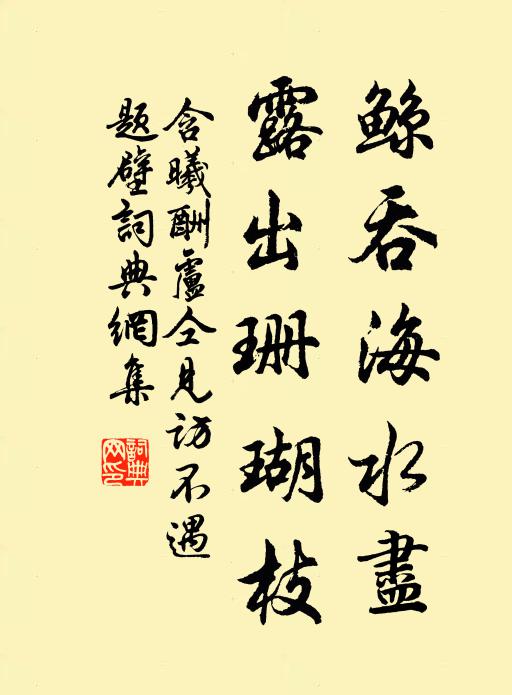 鲸吞海水盡
露出珊瑚枝
含曦酬盧仝見訪不遇
題壁詞典網集
詞典
网印